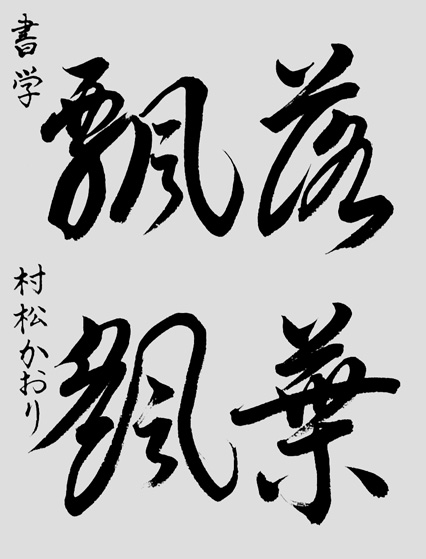 落葉
飄颻
書学
村松かおり